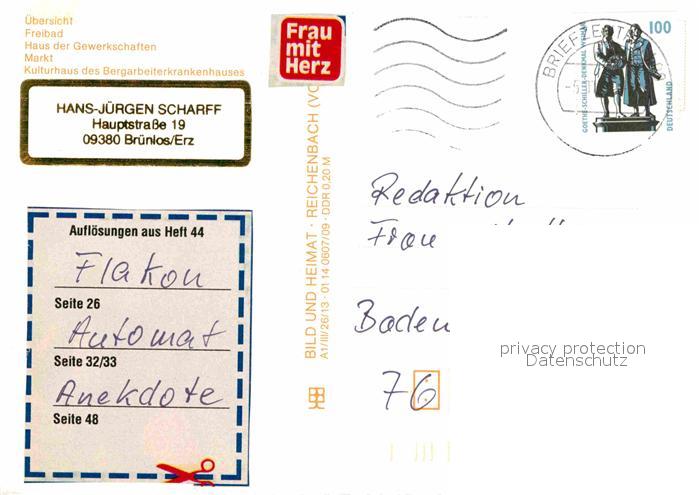 Übersicht
Freibad
Haus der Gewerkschaften
Markt
Kulturhaus des Bergarbeiterkrankenhauses
HANS-JÜRGEN SCHARFF
Hauptstraße 19
09380 Brünlos/Erz
Frau
mit
Herz
BILD UND HEIMAT · REICHENBACH (VO
A1/III/26/13 · 01 14 0607/09 · DDR 0,20 M
BRIEFZENT
100
GOETHE-SCHILLER-DENKMAL WEIMAR
DEUTSCHLAND
Auflösungen aus Heft 44
Flakon
Seite 26
Automat
Seite 32/33
Anekdote
Seite 48
Redaktion
Frau
Baden
76
privacy protection
Datenschutz